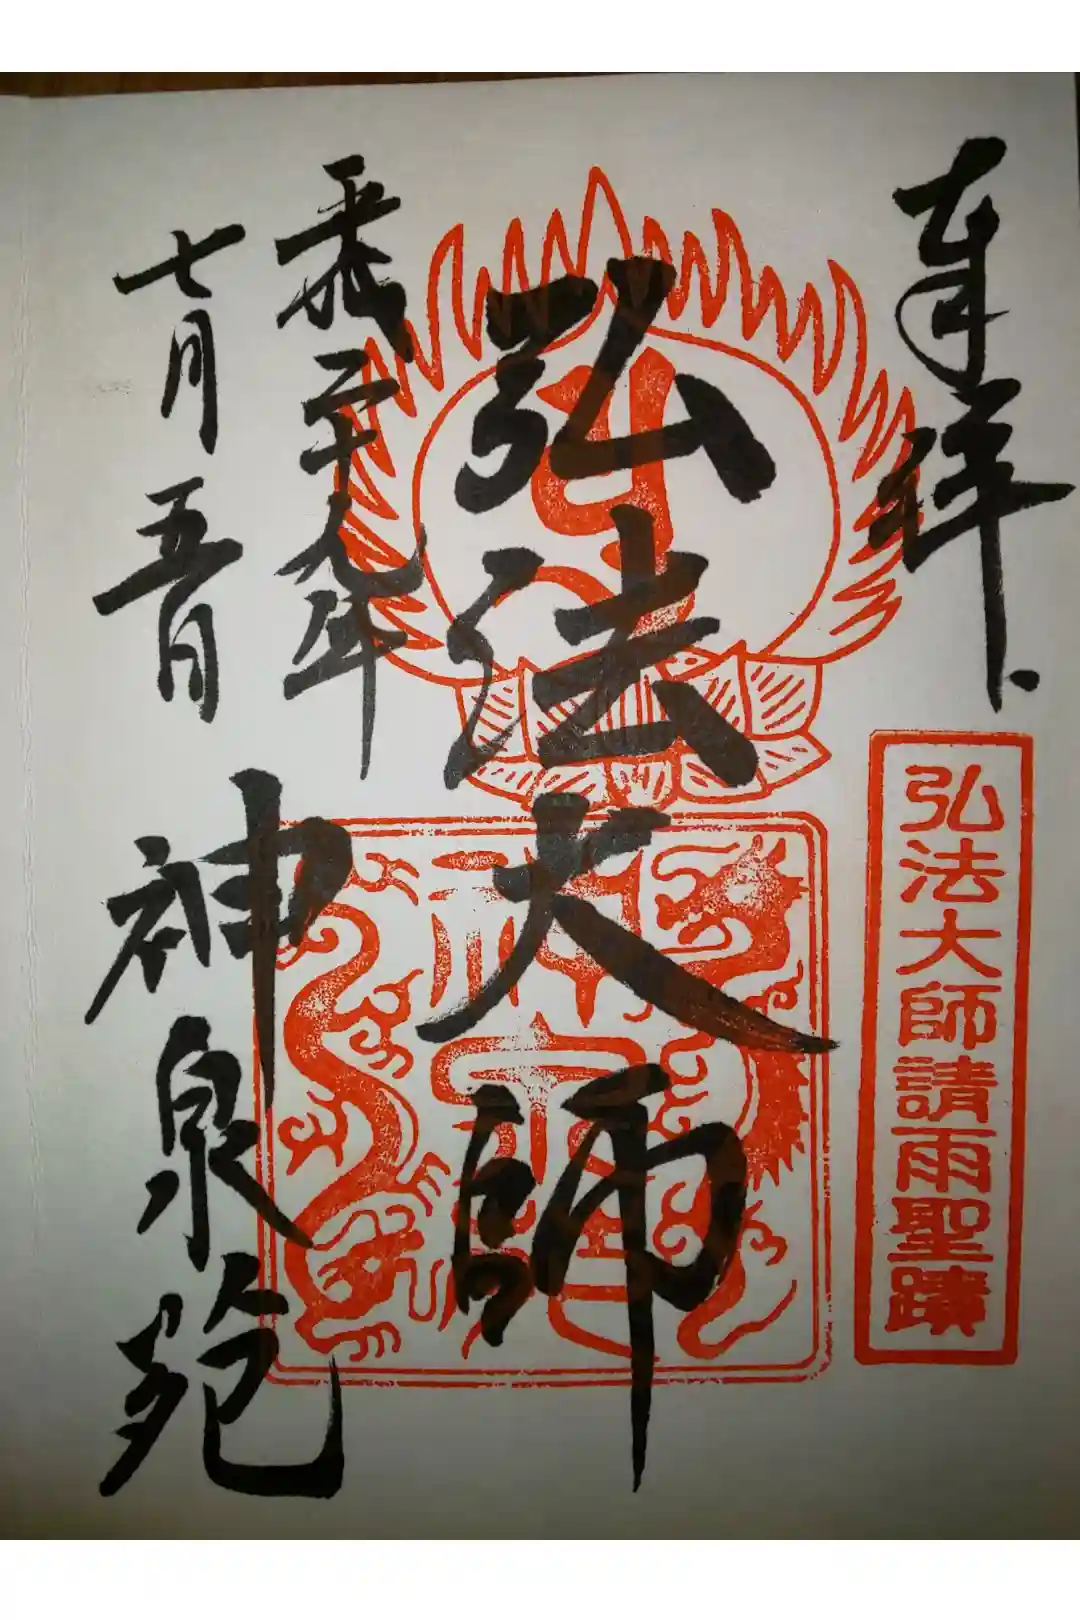 奉拝
弘法大師請雨聖蹟
弘法大師
平成二十九年
七月五日
神泉苑